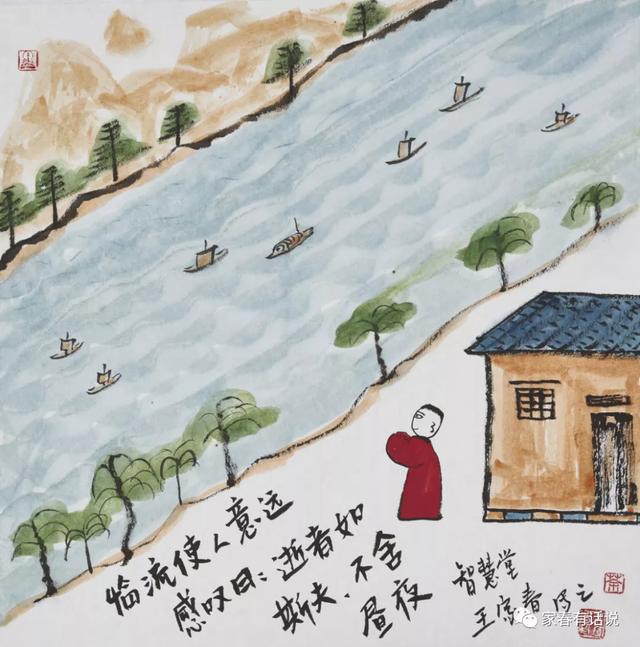 临流使人意远
感叹曰：逝者如
斯夫、不舍
昼夜
智慧堂
王家春写之
家春有话说